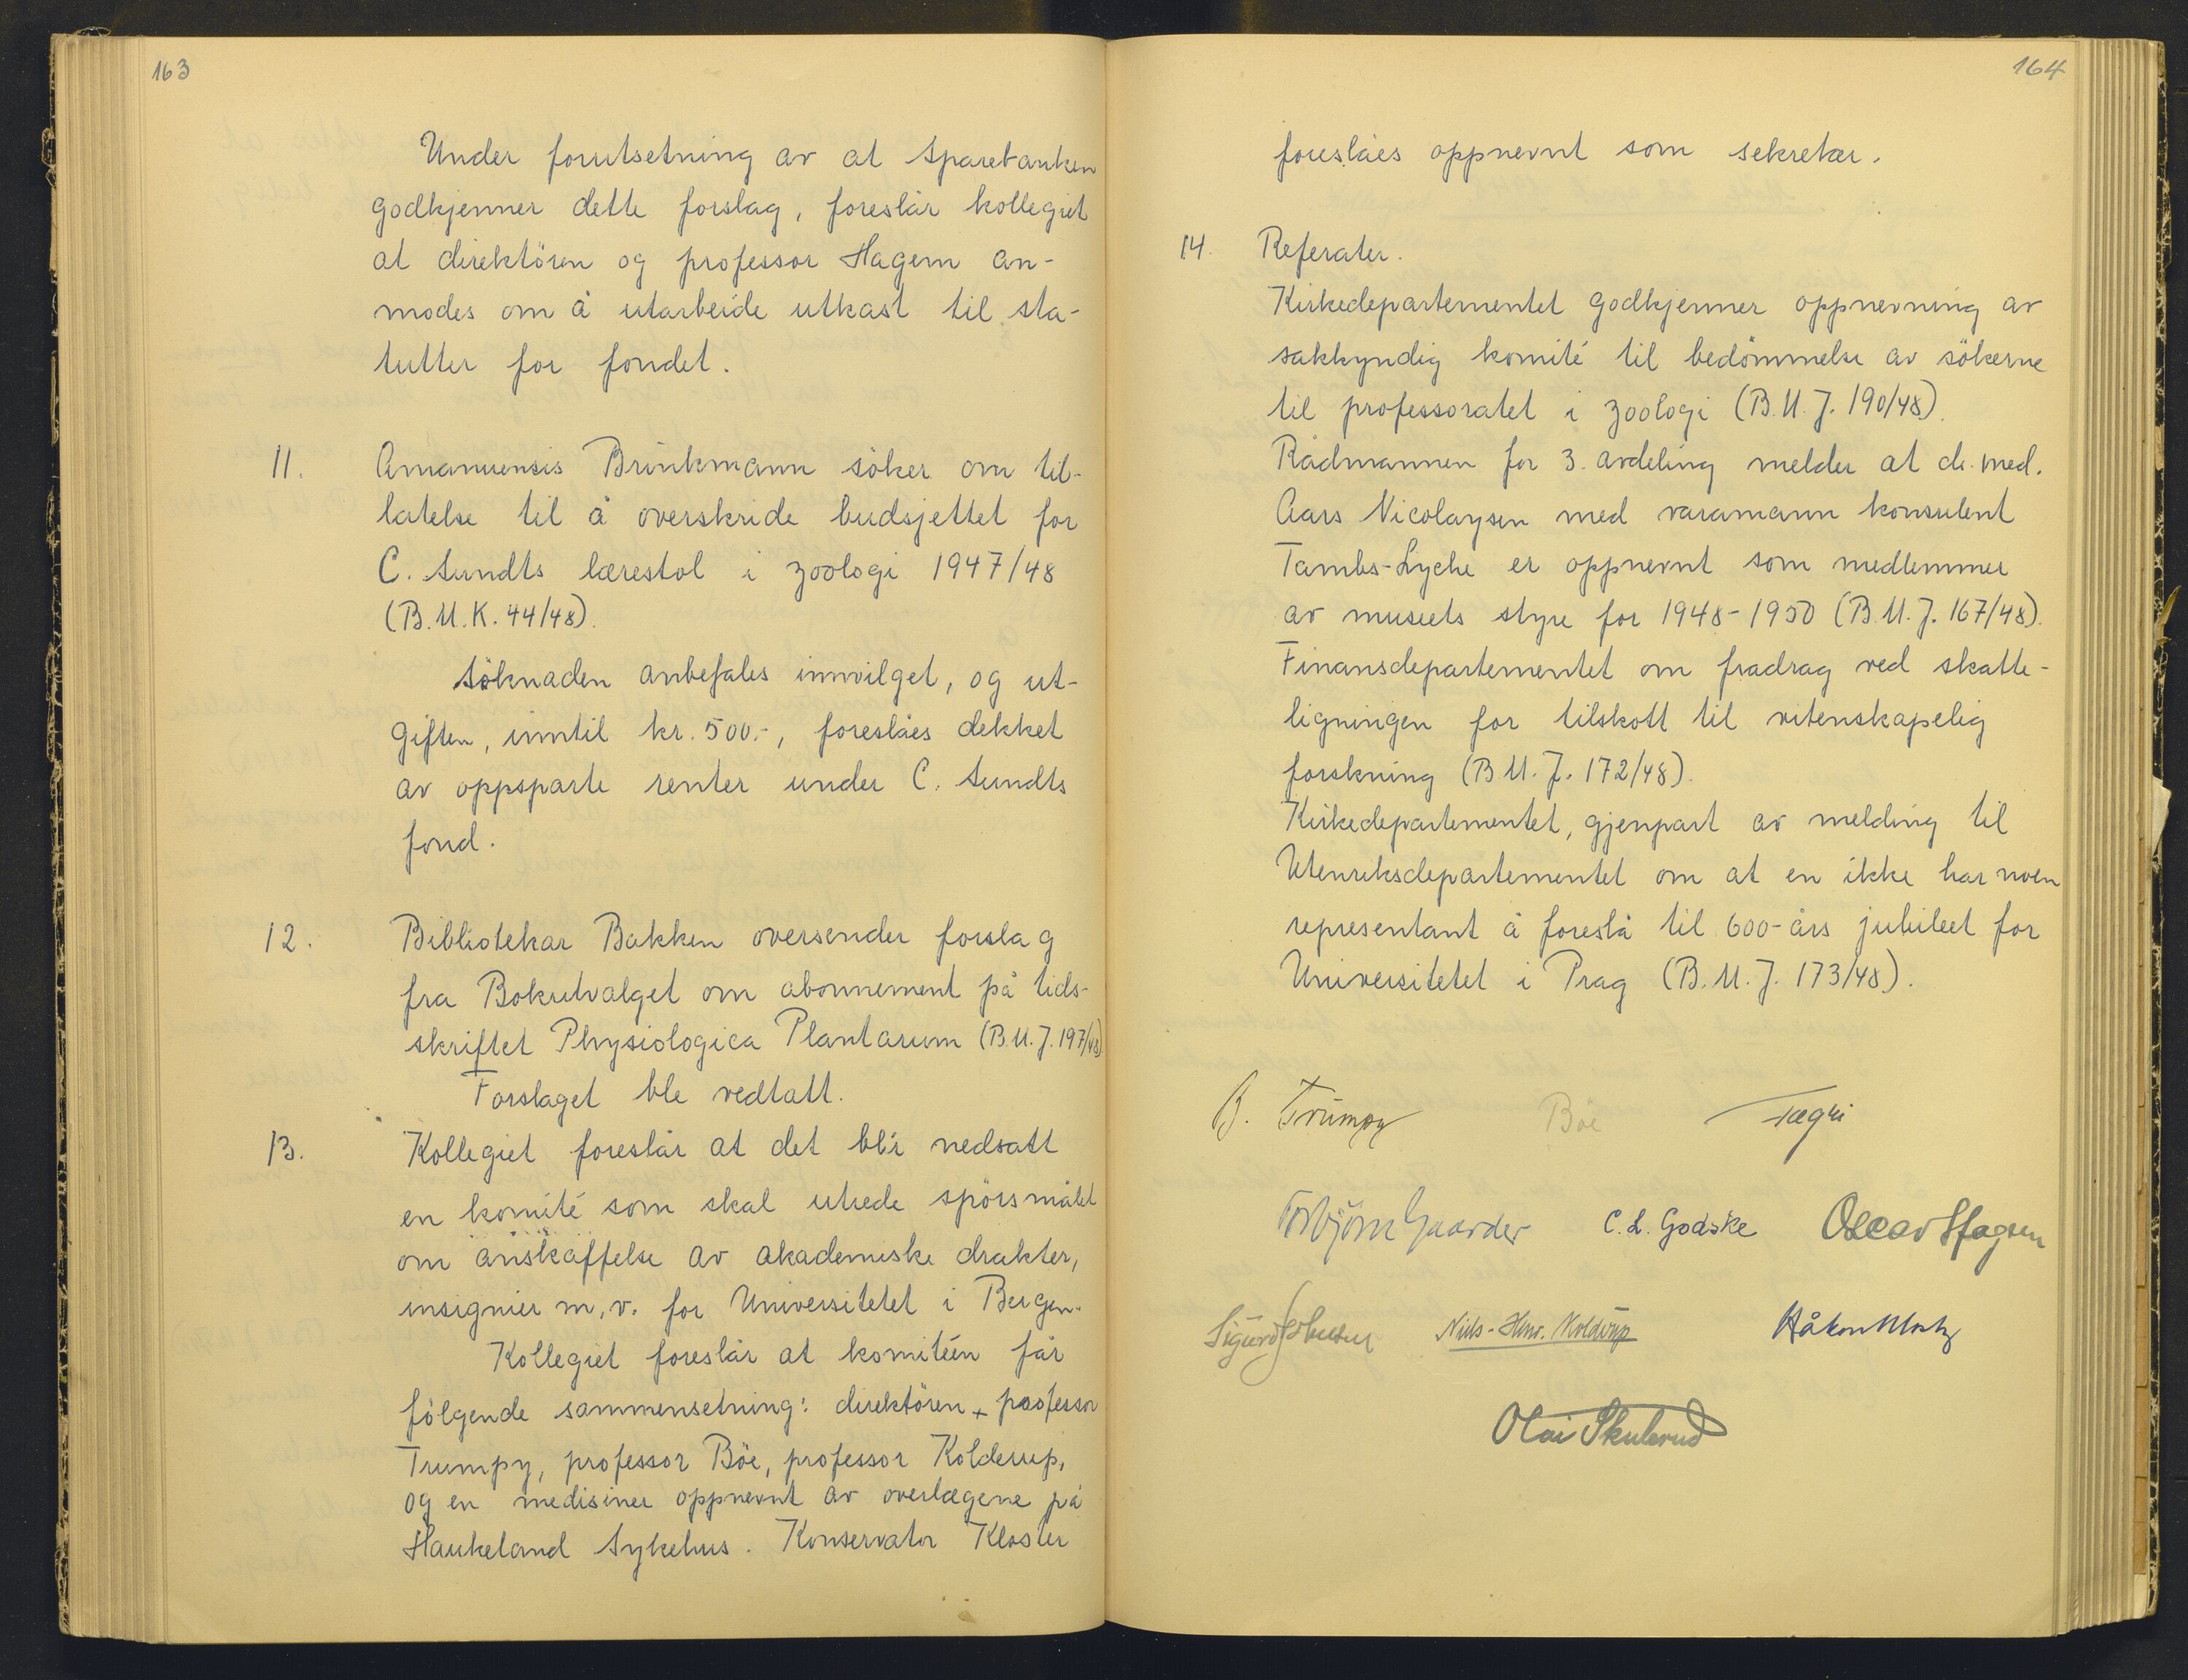 163
Under forutsetning av at Sparebanken
godkjenner dette forslag, foreslår kollegiet
at direktören og professor Hagem an-
modes om å utarbeide utkast til sta-
tutter for fondet.
11. Amanuensis Brinkmann söker om til-
latelse til å overskride budsjettet for
C. Sundts lærestol i zoologi 1947/48
(B.U.K. 44/48).
Söknaden anbefales innvilget, og ut-
giften, inntil kr. 500.-, foreslåes dekket
av oppsparte renter under C. Sundts
fond.
12. Bibliotekar Bakken oversender forslag
fra Bokutvalget om abonnement på tids-
skriftet Physiologica Plantarum (B.U.J. 197/48)
Forslaget ble vedtatt.
13. Kollegiet foreslår at det blir nedsatt
en komité som skal utrede spörsmålet
om anskaffelse av akademiske drakter,
insignier m.v. for Universitetet i Bergen.
Kollegiet foreslår at komitéen får
fölgende sammensetning: direktören, professor
Trumpy, professor Böe, professor Kolderup,
og en medisiner oppnevnt av overlægene på
Haukeland Sykehus. Konservator Kloster
164
foreslåes oppnevnt som sekretær.
14. Referater.
Kirkedepartementet godkjenner oppnevning av
sakkyndig komité til bedömmelse av sökerne
til professoratet i zoologi (B.U.J. 190/48).
Rådmannen for 3. avdeling melder at dr. med.
Aars Nicolaysen med varamann konsulent
Tambs-Lyche er oppnevnt som medlemmer
av museets styre for 1948-1950 (B.U.J. 167/48).
Finansdepartementet om fradrag ved skatte-
ligningen for tilskott til vitenskapelig
forskning (B.U.J. 172/48).
Kirkedepartementet, gjenpart av melding til
Utenriksdepartementet om at en ikke har noen
representant å foreslå til 600-års jubileet for
Universitetet i Prag (B.U.J. 173/48).
B. Trumpy Böe Fægri
Torbjörn Gaarder C. L. Godske Oscar Hagem
Sigurd Johnsen Niels-Henr. Kolderup Håkon Mosby
Olai Skulerud